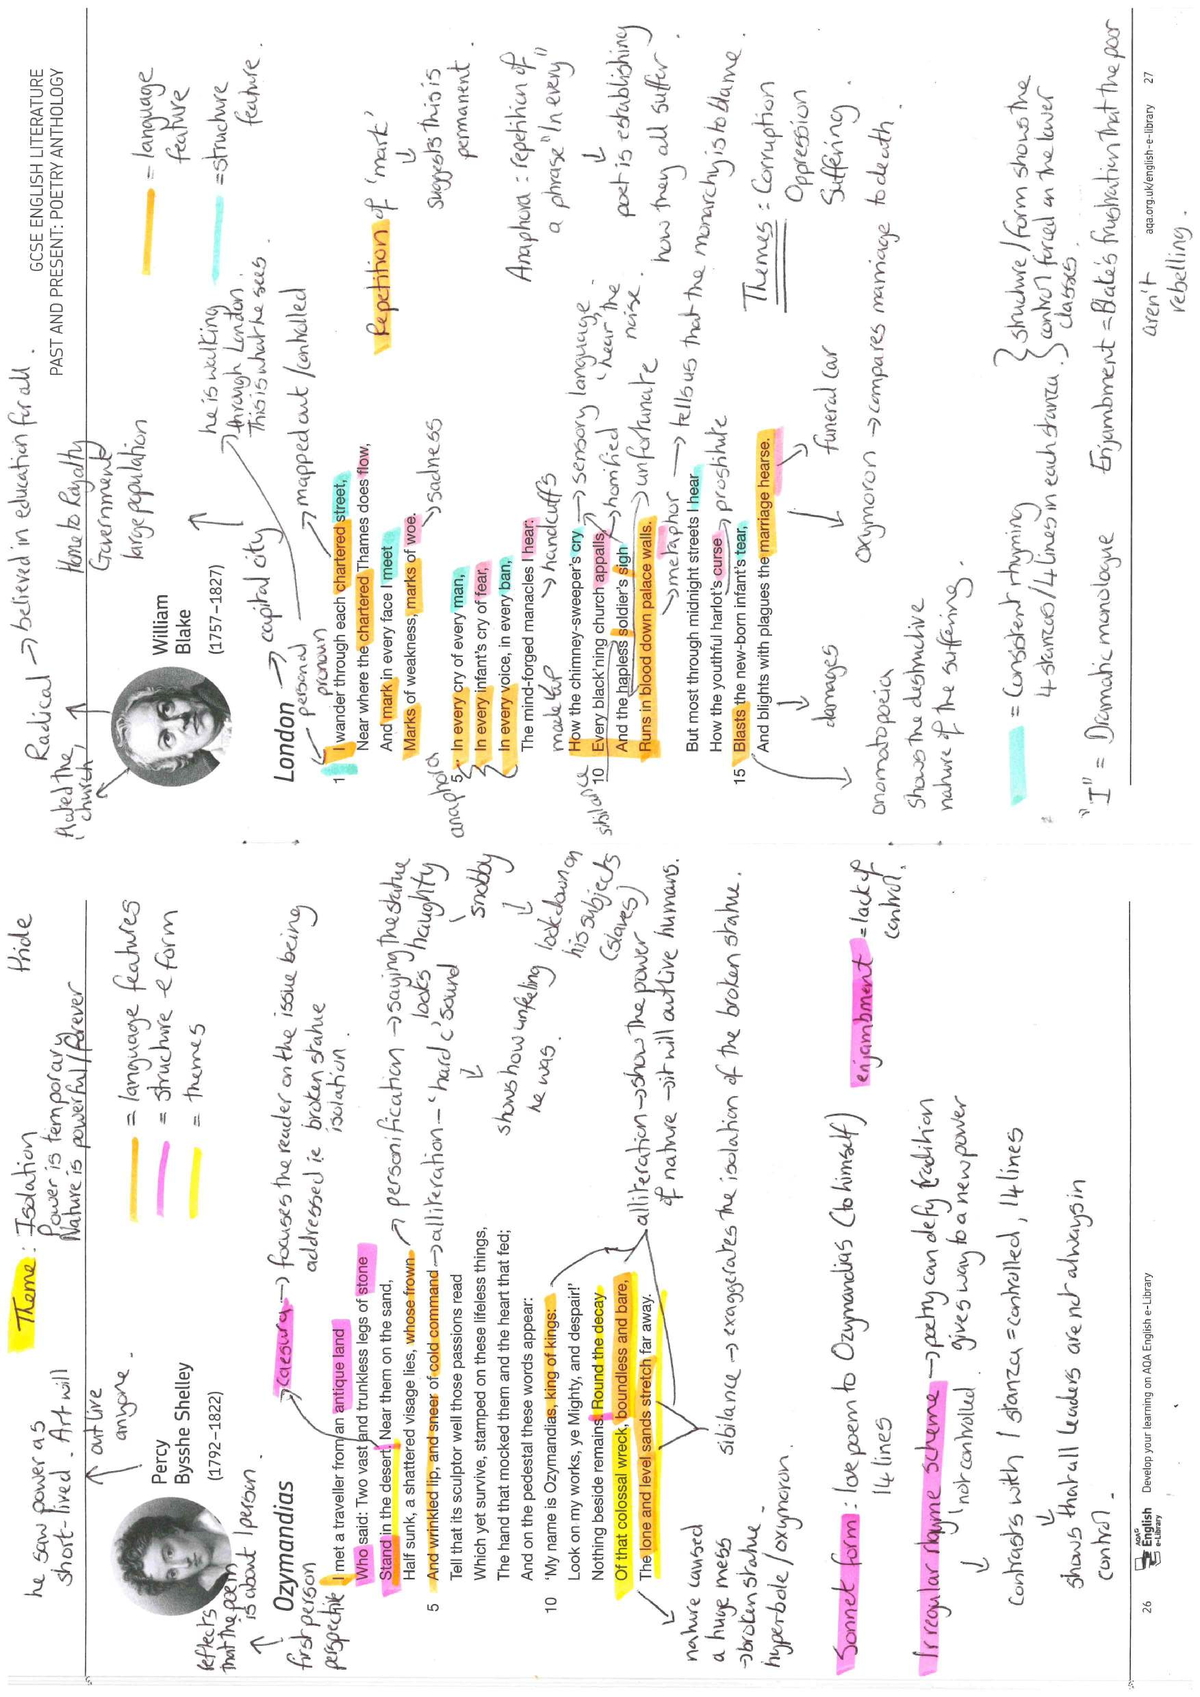 he saw power as
short-lived. Art will
outlive
anyone.
Theme: Isolation
Power is temporary
Nature is powerful/forever
Pride
= language features
= structure & form
= themes
Percy
Bysshe Shelley
(1792–1822)
reflects
that the poem
is about 1 person.
Ozymandias
first person
perspective
caesura → focuses the reader on the issue being
addressed ie broken statue
isolation.
I met a traveller from an antique land
Who said: Two vast and trunkless legs of stone
Stand in the desert. Near them on the sand,
Half sunk, a shattered visage lies, whose frown
5 And wrinkled lip, and sneer of cold command
Tell that its sculptor well those passions read
Which yet survive, stamped on these lifeless things,
The hand that mocked them and the heart that fed;
And on the pedestal these words appear:
10 'My name is Ozymandias, king of kings:
Look on my works, ye Mighty, and despair!'
Nothing beside remains. Round the decay
Of that colossal wreck, boundless and bare,
The lone and level sands stretch far away.
personification → saying the statue
looks haughty
snobby
look down on
his subjects
(slaves)
alliteration – 'hard c' sound
shows how unfeeling
he was.
alliteration → show the power
of nature → it will outlive humans.
Sibilance → exaggerates the isolation of the broken statue.
nature caused
a huge mess
→ broken statue.
hyperbole/oxymoron.
Sonnet form: love poem to Ozymandias (to himself)
14 lines
enjambment = lack of
control.
Irregular rhyme scheme → poetry can defy tradition
not controlled. gives way to a new power
Contrasts with 1 stanza = controlled, 14 lines
shows that all leaders are not always in
control.
26 AQA English e-Library Develop your learning on AQA English e-Library
GCSE ENGLISH LITERATURE
PAST AND PRESENT: POETRY ANTHOLOGY
Radical → believed in education for all.
Hated the
church
Home to Royalty
Government
large population
= language
feature
= structure
feature.
William
Blake
(1757–1827)
he is walking
through London.
This is what he sees.
London → capital city
personal
pronoun
mapped out/controlled
1 I wander through each chartered street,
Near where the chartered Thames does flow,
And mark in every face I meet
Marks of weakness, marks of woe.
sadness
Repetition of 'mark'
suggests this is
permanent.
anaphora
5 In every cry of every man,
In every infant's cry of fear,
In every voice, in every ban,
The mind-forged manacles I hear:
made up
handcuffs
Anaphora: repetition of
a phrase "In every"
poet is establishing
how they all suffer.
sibilance
How the chimney-sweeper's cry
10 Every black'ning church appalls,
And the hapless soldier's sigh
Runs in blood down palace walls.
sensory language,
'hear' the
noise.
horrified
unfortunate
metaphor → tells us that the monarchy is to blame.
But most through midnight streets I hear
How the youthful harlot's curse
15 Blasts the new-born infant's tear,
And blights with plagues the marriage hearse.
prostitute
Themes: Corruption
Oppression
Suffering.
damages
funeral car
Oxymoron → compares marriage to death.
Onomatopoeia
Shows the destructive
nature of the suffering.
= Consistent rhyming
4 stanzas/4 lines in each stanza.
structure/form shows the
control forced on the lower
classes.
"I" = Dramatic monologue
Enjambment = Blake's frustration that the poor
aren't
rebelling.
aqa.org.uk/english-e-library 27